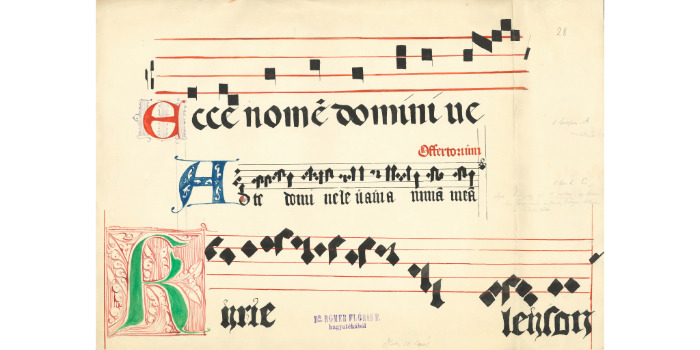 28
Eccē nomē domini ue
Offertorium
Ad te domi ne le uaui a nimā meā
Kirie leison
Dr. RÓMER FLÓRIS F.
hagyatékából